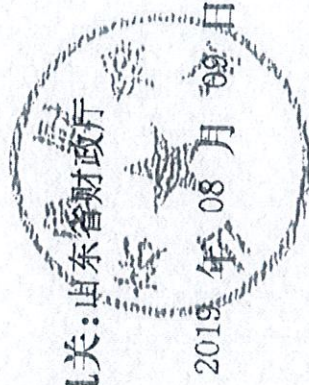 机关：山东省财政厅
2019 年 08 月 09 日